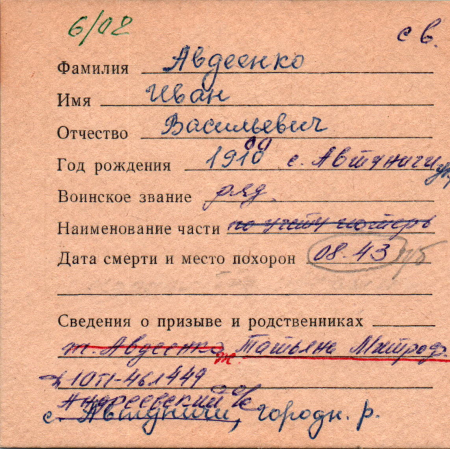 6/02
с в.
Фамилия Авдеенко
Имя Иван
Отчество Васильевич
Год рождения 1910 с. Автуничи
Воинское звание ряд.
Наименование части по учету потерь
Дата смерти и место похорон 08.43
Сведения о призыве и родственниках
ж. Авдеенко Татьяна Митроф.
1011-461449
Андреевский с/с
с. Автуничи, городн. р.